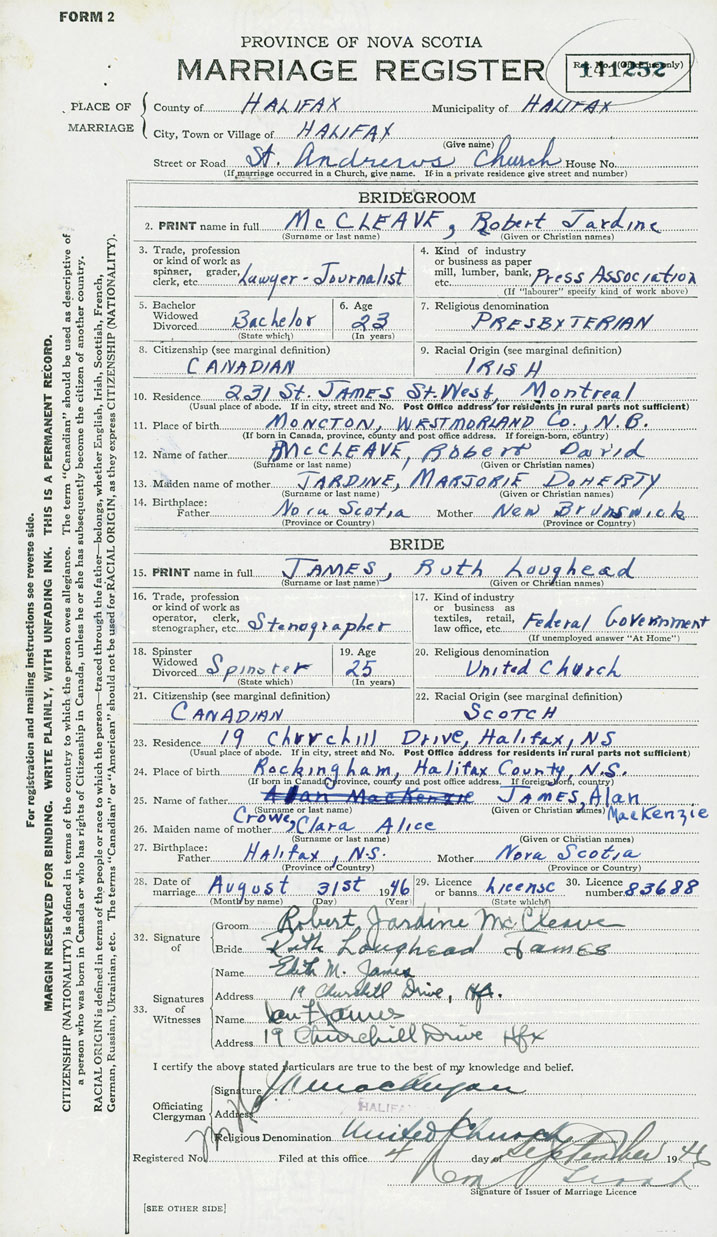 FORM 2
PROVINCE OF NOVA SCOTIA
MARRIAGE REGISTER
Reg. No. (Office use only)
141232
PLACE OF MARRIAGE
County of HALIFAX Municipality of HALIFAX
City, Town or Village of HALIFAX
(Give name)
Street or Road St. Andrews Church House No.
(If marriage occurred in a Church, give name. If in a private residence give street and number)
BRIDEGROOM
2. PRINT name in full McCLEAVE, Robert Jardine
(Surname or last name) (Given or Christian names)
3. Trade, profession or kind of work as spinner, grader, clerk, etc. Lawyer-Journalist
4. Kind of industry or business as paper mill, lumber, bank, etc. Press Association
(If "labourer" specify kind of work above)
5. Bachelor Widowed Divorced Bachelor
(State which)
6. Age 23
(In years)
7. Religious denomination
PRESBYTERIAN
8. Citizenship (see marginal definition)
CANADIAN
9. Racial Origin (see marginal definition)
IRISH
10. Residence 231 St. JAMES St. West, Montreal
(Usual place of abode. If in city, street and No. Post Office address for residents in rural parts not sufficient)
11. Place of birth MONCTON, WESTMORLAND Co., N.B.
(If born in Canada, province, county and post office address. If foreign-born, country)
12. Name of father McCLEAVE, Robert David
(Surname or last name) (Given or Christian names)
13. Maiden name of mother JARDINE, MARJORIE DOHERTY
(Surname or last name) (Given or Christian names)
14. Birthplace: Father Nova Scotia Mother New Brunswick
(Province or Country) (Province or Country)
BRIDE
15. PRINT name in full JAMES, Ruth Loughead
(Surname or last name) (Given or Christian names)
16. Trade, profession or kind of work as operator, clerk, stenographer, etc. Stenographer
17. Kind of industry or business as textiles, retail, law office, etc. Federal Government
(If unemployed answer "At Home")
18. Spinster Widowed Divorced Spinster
(State which)
19. Age 25
(In years)
20. Religious denomination
United Church
21. Citizenship (see marginal definition)
CANADIAN
22. Racial Origin (see marginal definition)
SCOTCH
23. Residence 19 Churchill Drive, Halifax, NS
(Usual place of abode. If in city, street and No. Post Office address for residents in rural parts not sufficient)
24. Place of birth Rockingham, Halifax County, N.S.
(If born in Canada, province, county and post office address. If foreign born, country)
25. Name of father Alan MacKenzie JAMES, Alan MacKenzie
(Surname or last name) (Given or Christian names)
26. Maiden name of mother Crowe, Clara Alice
(Surname or last name) (Given or Christian names)
27. Birthplace: Father Halifax, N.S. Mother Nova Scotia
(Province or Country) (Province or Country)
28. Date of marriage August 31st 1946
(Month by name) (Day) (Year)
29. Licence or banns License
(State which)
30. Licence number 83688
32. Signature of
Groom Robert Jardine McCleave
Bride Ruth Loughead James
33. Signatures of Witnesses
Name Edith M. James
Address 19 Churchill Drive, Hfx.
Name Ian F James
Address 19 Churchill Drive Hfx
I certify the above stated particulars are true to the best of my knowledge and belief.
Officiating Clergyman
Signature
Address HALIFAX
Religious Denomination United Church
Registered No. Filed at this office 4 day of September 1946
Signature of Issuer of Marriage Licence
[SEE OTHER SIDE]
For registration and mailing instructions see reverse side.
MARGIN RESERVED FOR BINDING. WRITE PLAINLY, WITH UNFADING INK. THIS IS A PERMANENT RECORD.
CITIZENSHIP (NATIONALITY) is defined in terms of the country to which the person owes allegiance. The term "Canadian" should be used as descriptive of
a person who was born in Canada or who has rights of Citizenship in Canada, unless he or she has subsequently become the citizen of another country.
RACIAL ORIGIN is defined in terms of the people or race to which the person—traced through the father—belongs, whether English, Irish, Scottish, French,
German, Russian, Ukrainian, etc. The terms "Canadian" or "American" should not be used for RACIAL ORIGIN, as they express CITIZENSHIP (NATIONALITY).